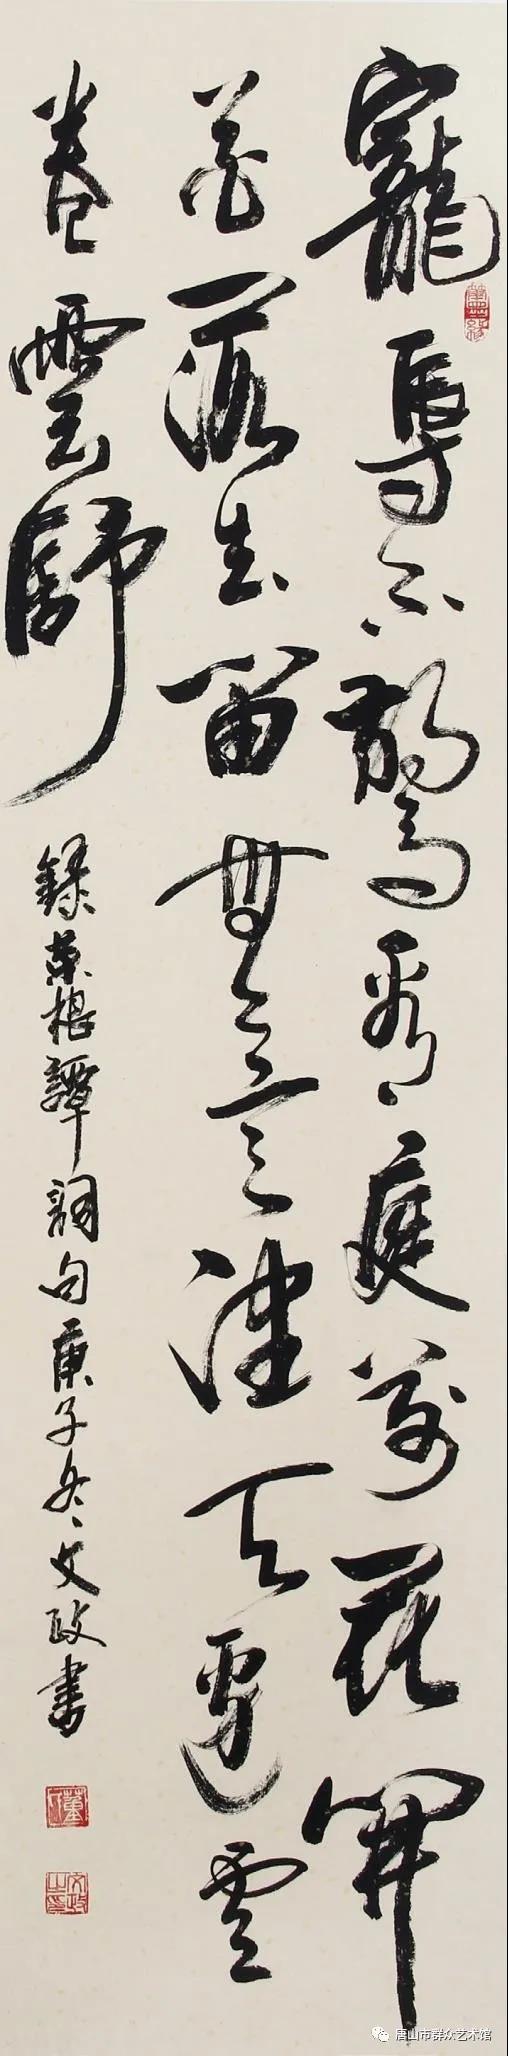 寵辱不驚看庭前花開
花落去留無意天邊雲
卷雲舒
錄菜根譚詞句庚子冬文政書
文政之印
唐山市群众艺术馆